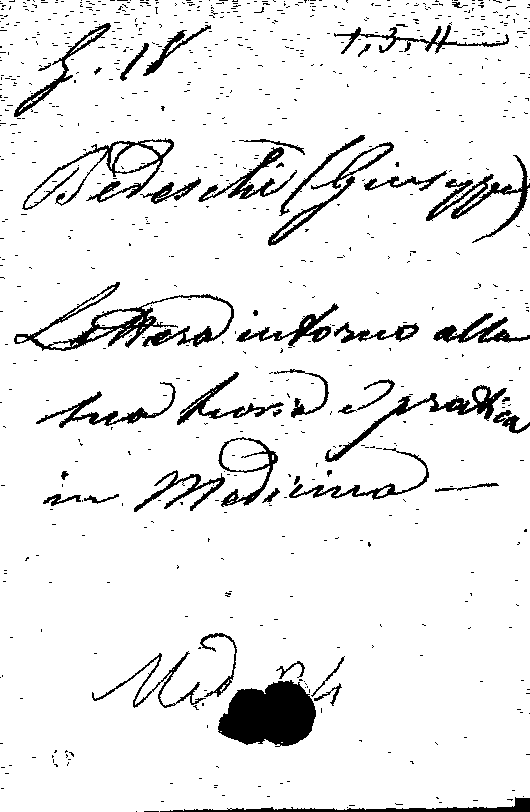 G. 18 1, 5. 11
Tedeschi (Giuseppe)
Lettera intorno alla
sua teoria e pratica
in Medicina —
Med. 4